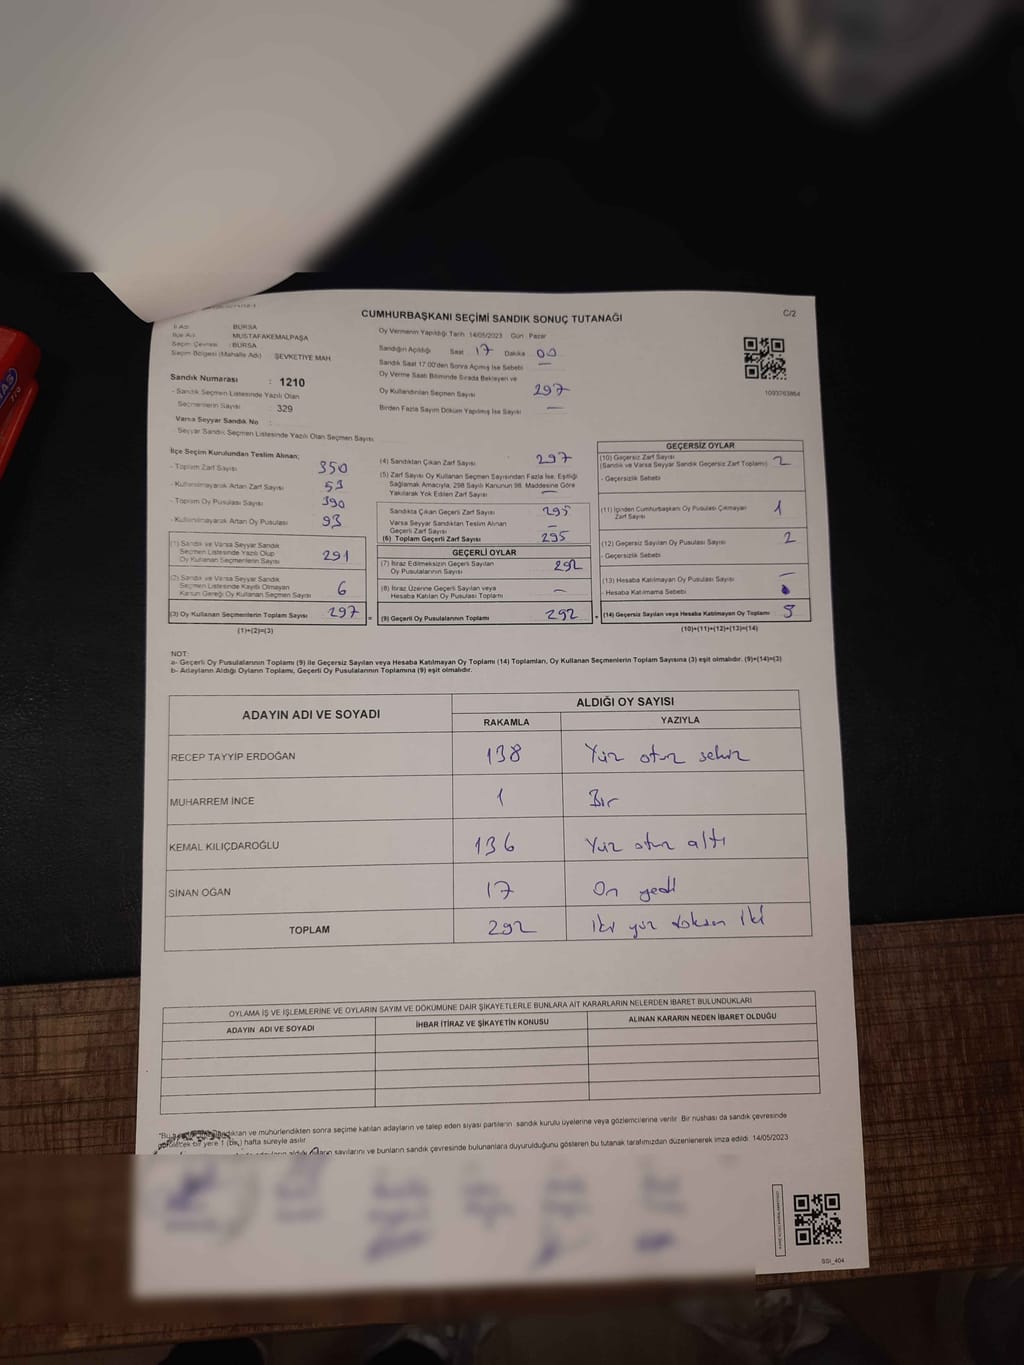 CUMHURBAŞKANI SEÇİMİ SANDIK SONUÇ TUTANAĞI
C/2
İl Adı : BURSA
İlçe Adı : MUSTAFAKEMALPAŞA
Seçim Çevresi : BURSA
Seçim Bölgesi (Mahalle Adı) ŞEVKETİYE MAH.
Sandık Numarası : 1210
- Sandık Seçmen Listesinde Yazılı Olan
Seçmenlerin Sayısı : 329
Varsa Seyyar Sandık No :
- Seyyar Sandık Seçmen Listesinde Yazılı Olan Seçmen Sayısı
Oy Vermenin Yapıldığı Tarih : 14/05/2023 Gün : Pazar
Sandığın Açıldığı Saat 17 Dakika 00
Sandık Saat 17.00'den Sonra Açılmış İse Sebebi —
Oy Verme Saati Bitiminde Sırada Bekleyen ve
Oy Kullandırılan Seçmen Sayısı 297
Birden Fazla Sayım Döküm Yapılmış İse Sayısı —
1093763864
İlçe Seçim Kurulundan Teslim Alınan;
- Toplam Zarf Sayısı 350
- Kullanılmayarak Artan Zarf Sayısı 53
- Toplam Oy Pusulası Sayısı 390
- Kullanılmayarak Artan Oy Pusulası 93
(1) Sandık ve Varsa Seyyar Sandık
Seçmen Listesinde Yazılı Olup
Oy Kullanan Seçmenlerin Sayısı 291
(2) Sandık ve Varsa Seyyar Sandık
Seçmen Listesinde Kayıtlı Olmayan
Kanun Gereği Oy Kullanan Seçmen Sayısı 6
(3) Oy Kullanan Seçmenlerin Toplam Sayısı 297 =
(1)+(2)=(3)
(4) Sandıktan Çıkan Zarf Sayısı 297
(5) Zarf Sayısı Oy Kullanan Seçmen Sayısından Fazla İse, Eşitliği
Sağlamak Amacıyla, 298 Sayılı Kanunun 98. Maddesine Göre
Yakılarak Yok Edilen Zarf Sayısı —
Sandıkta Çıkan Geçerli Zarf Sayısı 295
Varsa Seyyar Sandıktan Teslim Alınan
Geçerli Zarf Sayısı —
(6) Toplam Geçerli Zarf Sayısı 295
GEÇERLİ OYLAR
(7) İtiraz Edilmeksizin Geçerli Sayılan
Oy Pusulalarının Sayısı 292
(8) İtiraz Üzerine Geçerli Sayılan veya
Hesaba Katılan Oy Pusulası Toplamı —
(9) Geçerli Oy Pusulalarının Toplamı 292 +
GEÇERSİZ OYLAR
(10) Geçersiz Zarf Sayısı
(Sandık ve Varsa Seyyar Sandık Geçersiz Zarf Toplamı) 2
- Geçersizlik Sebebi
(11) İçinden Cumhurbaşkanı Oy Pusulası Çıkmayan
Zarf Sayısı 1
(12) Geçersiz Sayılan Oy Pusulası Sayısı 2
- Geçersizlik Sebebi
(13) Hesaba Katılmayan Oy Pusulası Sayısı —
- Hesaba Katılmama Sebebi
(14) Geçersiz Sayılan veya Hesaba Katılmayan Oy Toplamı
(10)+(11)+(12)+(13)=(14)
NOT:
a- Geçerli Oy Pusulalarının Toplamı (9) ile Geçersiz Sayılan veya Hesaba Katılmayan Oy Toplamı (14) Toplamları, Oy Kullanan Seçmenlerin Toplam Sayısına (3) eşit olmalıdır. (9)+(14)=(3)
b- Adayların Aldığı Oyların Toplamı, Geçerli Oy Pusulalarının Toplamına (9) eşit olmalıdır.
ADAYIN ADI VE SOYADI ALDIĞI OY SAYISI
RAKAMLA YAZIYLA
RECEP TAYYİP ERDOĞAN 138 Yüz otuz sekiz
MUHARREM İNCE 1 Bir
KEMAL KILIÇDAROĞLU 136 Yüz otuz altı
SİNAN OĞAN 17 On yedi
TOPLAM 292 İki yüz doksan İki
OYLAMA İŞ VE İŞLEMLERİNE VE OYLARIN SAYIM VE DÖKÜMÜNE DAİR ŞİKAYETLERLE BUNLARA AİT KARARLARIN NELERDEN İBARET BULUNDUKLARI
ADAYIN ADI VE SOYADI İHBAR İTİRAZ VE ŞİKAYETİN KONUSU ALINAN KARARIN NEDEN İBARET OLDUĞU
mühürlendikten sonra seçime katılan adayların ve talep eden siyasi partilerin sandık kurulu üyelerine veya gözlemcilerine verilir. Bir nüshası da sandık çevresinde
bir yere 1 (bir) hafta süreyle asılır.
sayılarını ve bunların sandık çevresinde bulunanlara duyurulduğunu gösteren bu tutanak tarafımızdan düzenlenerek imza edildi. 14/05/2023
SSI_404